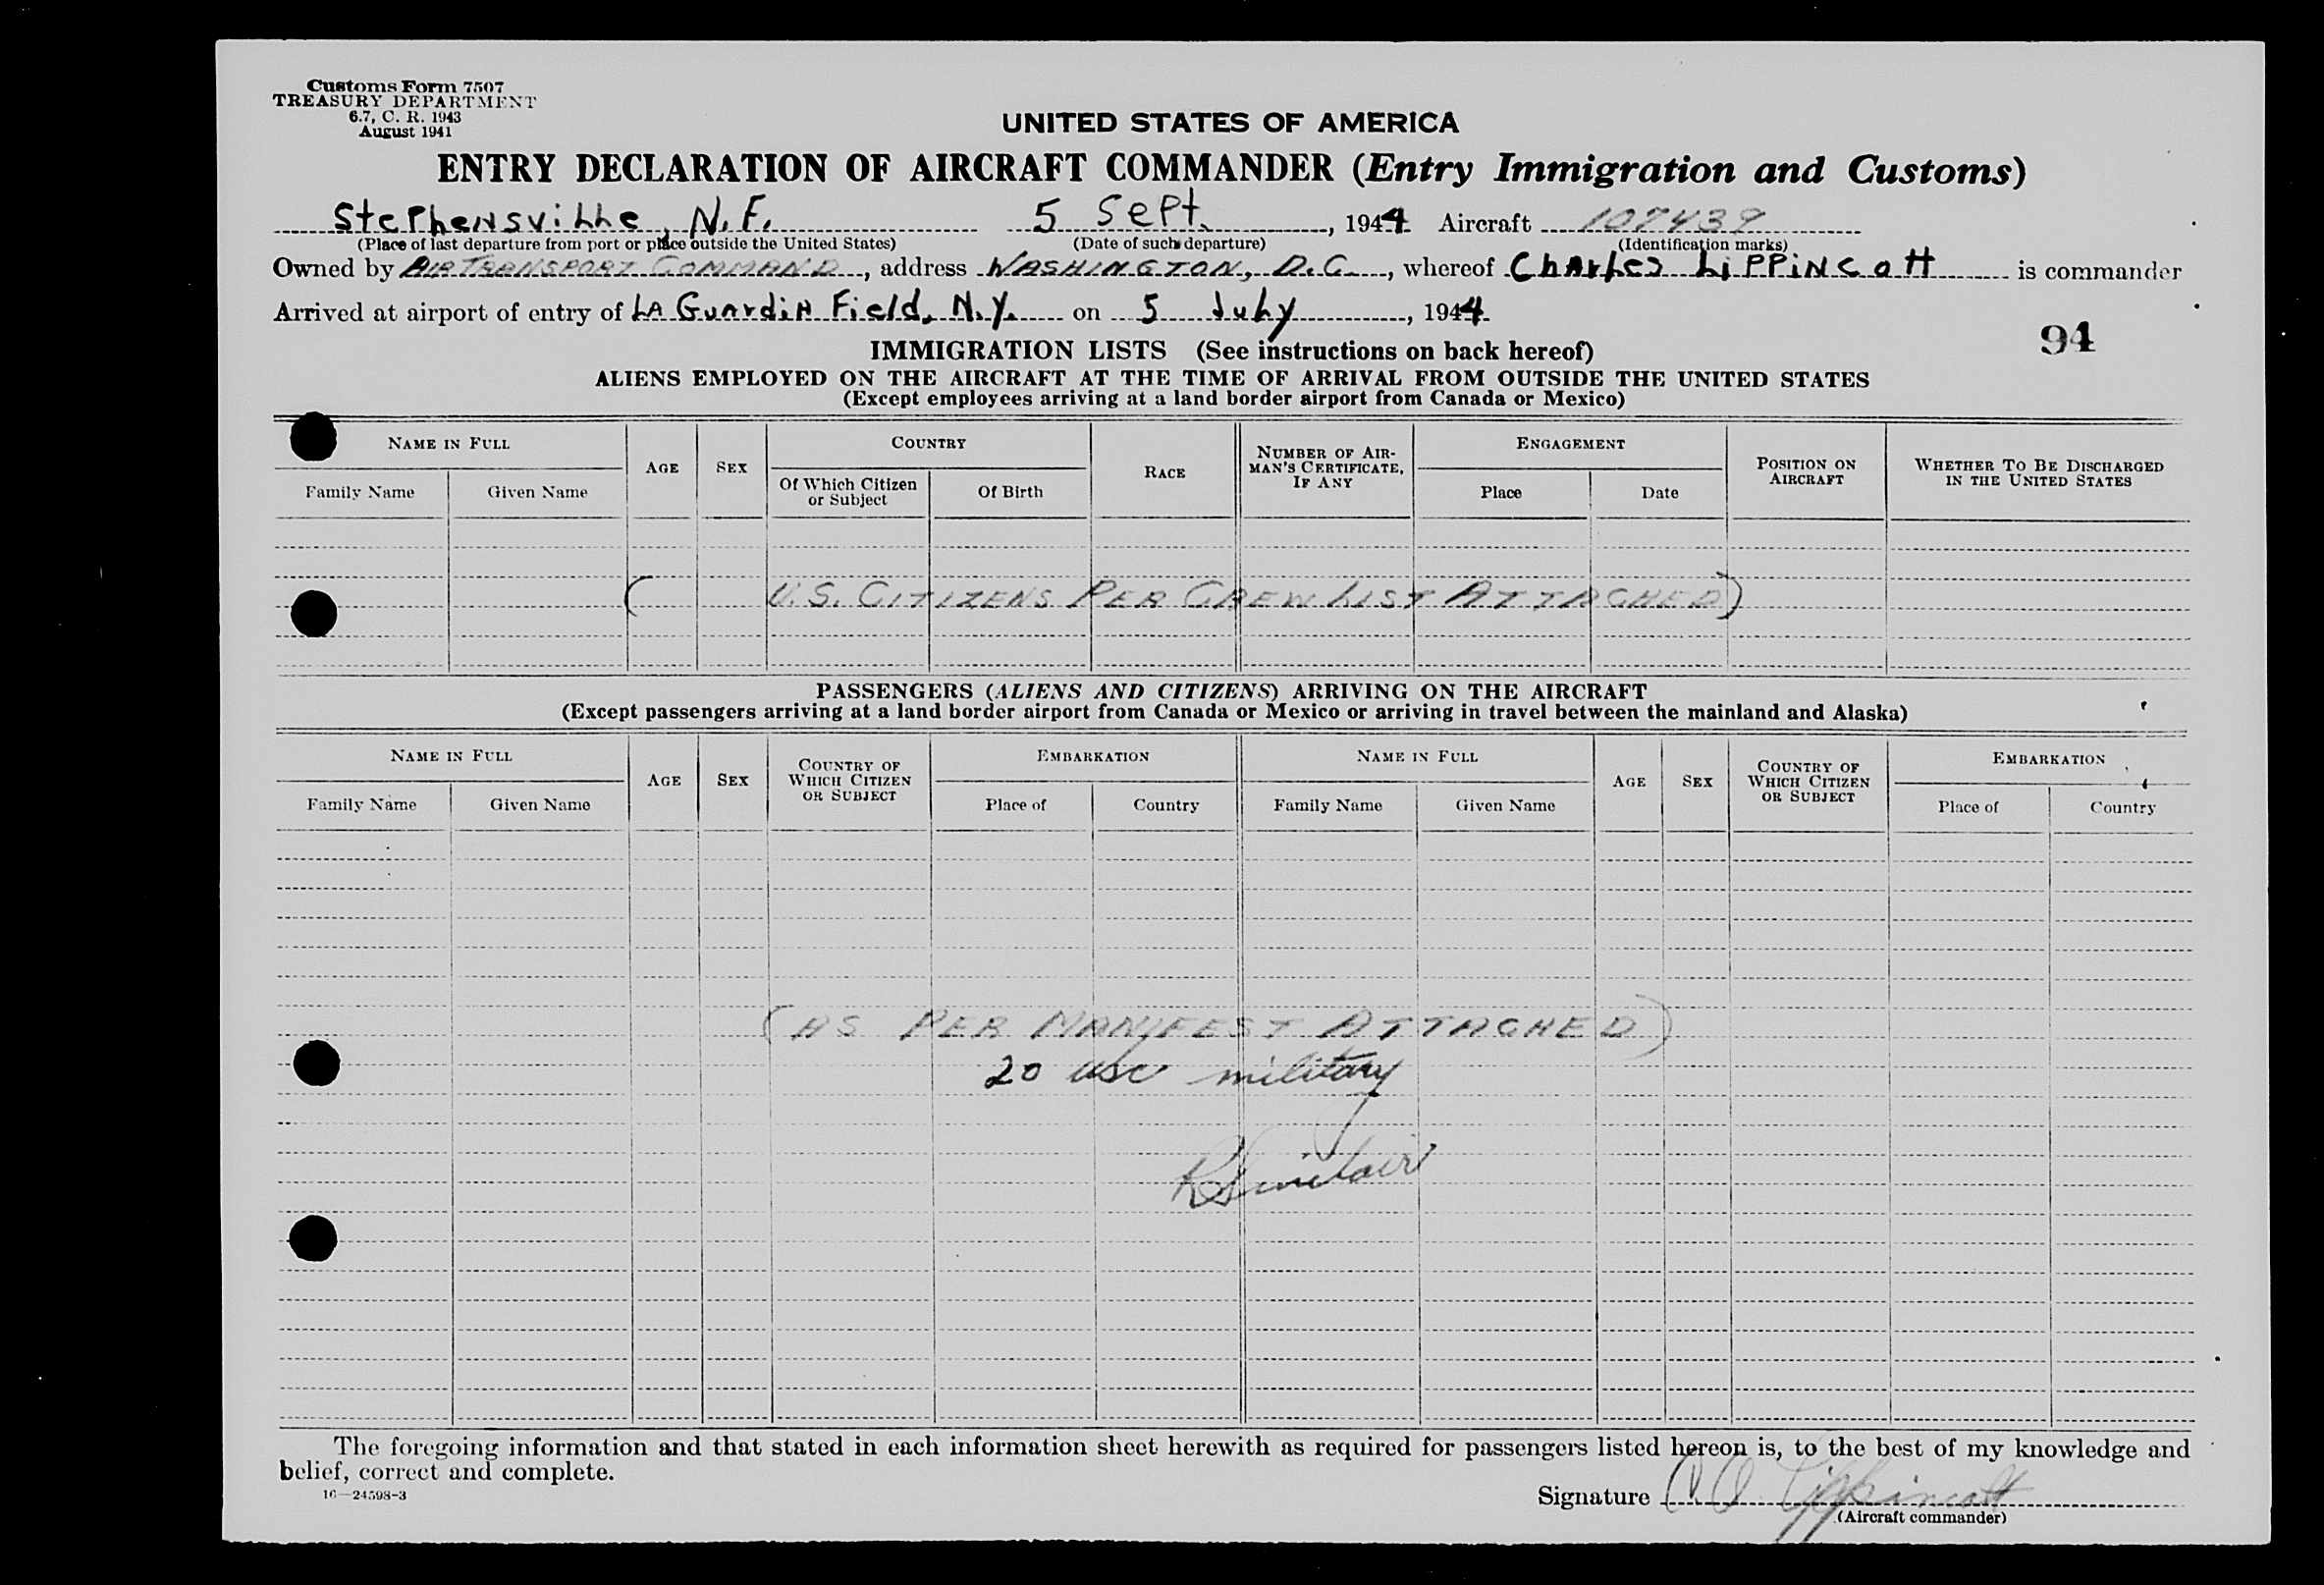 Customs Form 7507
TREASURY DEPARTMENT
6.7, C. R. 1943
August 1941
UNITED STATES OF AMERICA
ENTRY DECLARATION OF AIRCRAFT COMMANDER (Entry Immigration and Customs)
Stephensville, N.F. 5 Sept., 1944 Aircraft 107439
(Place of last departure from port or place outside the United States) (Date of such departure) (Identification marks)
Owned by AIR TRANSPORT COMMAND, address WASHINGTON, D.C., whereof Charles Lippincott is commander
Arrived at airport of entry of LA Guardia Field, N.Y. on 5 July, 1944
94
IMMIGRATION LISTS (See instructions on back hereof)
ALIENS EMPLOYED ON THE AIRCRAFT AT THE TIME OF ARRIVAL FROM OUTSIDE THE UNITED STATES
(Except employees arriving at a land border airport from Canada or Mexico)
NAME IN FULL
Family Name Given Name
AGE
SEX
COUNTRY
Of Which Citizen or Subject Of Birth
RACE
NUMBER OF AIRMAN'S CERTIFICATE, IF ANY
ENGAGEMENT
Place Date
POSITION ON AIRCRAFT
WHETHER TO BE DISCHARGED IN THE UNITED STATES
( U.S. CITIZENS PER CREW LIST ATTACHED)
PASSENGERS (ALIENS AND CITIZENS) ARRIVING ON THE AIRCRAFT
(Except passengers arriving at a land border airport from Canada or Mexico or arriving in travel between the mainland and Alaska)
NAME IN FULL
Family Name Given Name
AGE
SEX
COUNTRY OF WHICH CITIZEN OR SUBJECT
EMBARKATION
Place of Country
NAME IN FULL
Family Name Given Name
AGE
SEX
COUNTRY OF WHICH CITIZEN OR SUBJECT
EMBARKATION
Place of Country
(AS PER MANIFEST ATTACHED)
20 usc military
R Sinclair
The foregoing information and that stated in each information sheet herewith as required for passengers listed hereon is, to the best of my knowledge and
belief, correct and complete.
16—24598-3
Signature C. O. Lippincott
(Aircraft commander)